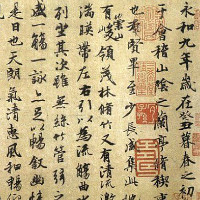 永和九年歲在癸丑暮春之初
于會稽山陰之蘭亭脩稧
畢至少長咸集此
崇山
有峻領茂林脩竹又有清流
湍暎帶左右引以為流觴曲
列坐其次雖無絲竹管弦
盛一觴一詠亦足以暢敘幽
是日也天朗氣清惠風和暢